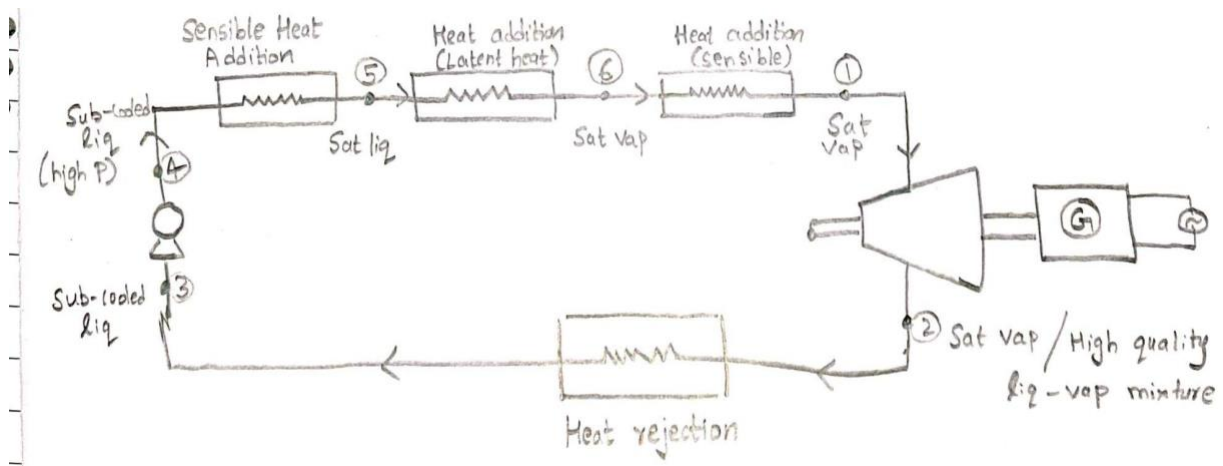 Sensible Heat
Addition
Heat addition
(Latent heat)
Heat addition
(sensible)
5
6
1
Sub-cooled
liq
(high P)
Sat liq
Sat vap
Sat
vap
4
G
~
3
Sub-cooled
liq
2 Sat vap / High quality
liq-vap mixture
Heat rejection